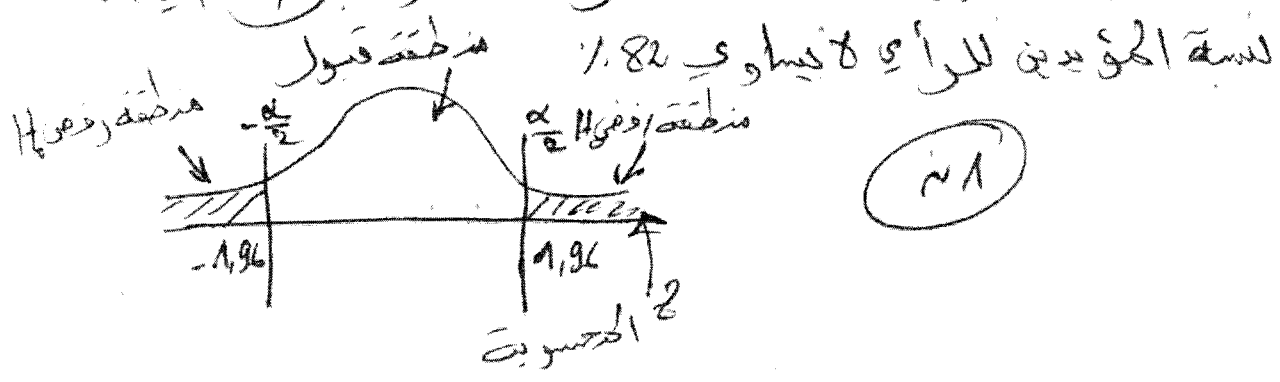 نسبة المؤيدين للرأي لا يساوي 82 %
منطقة قبول
منطقة رفض H₀
منطقة رفض H₀
-α/2
α/2
-1,96
1,96
Z
المحسوبة